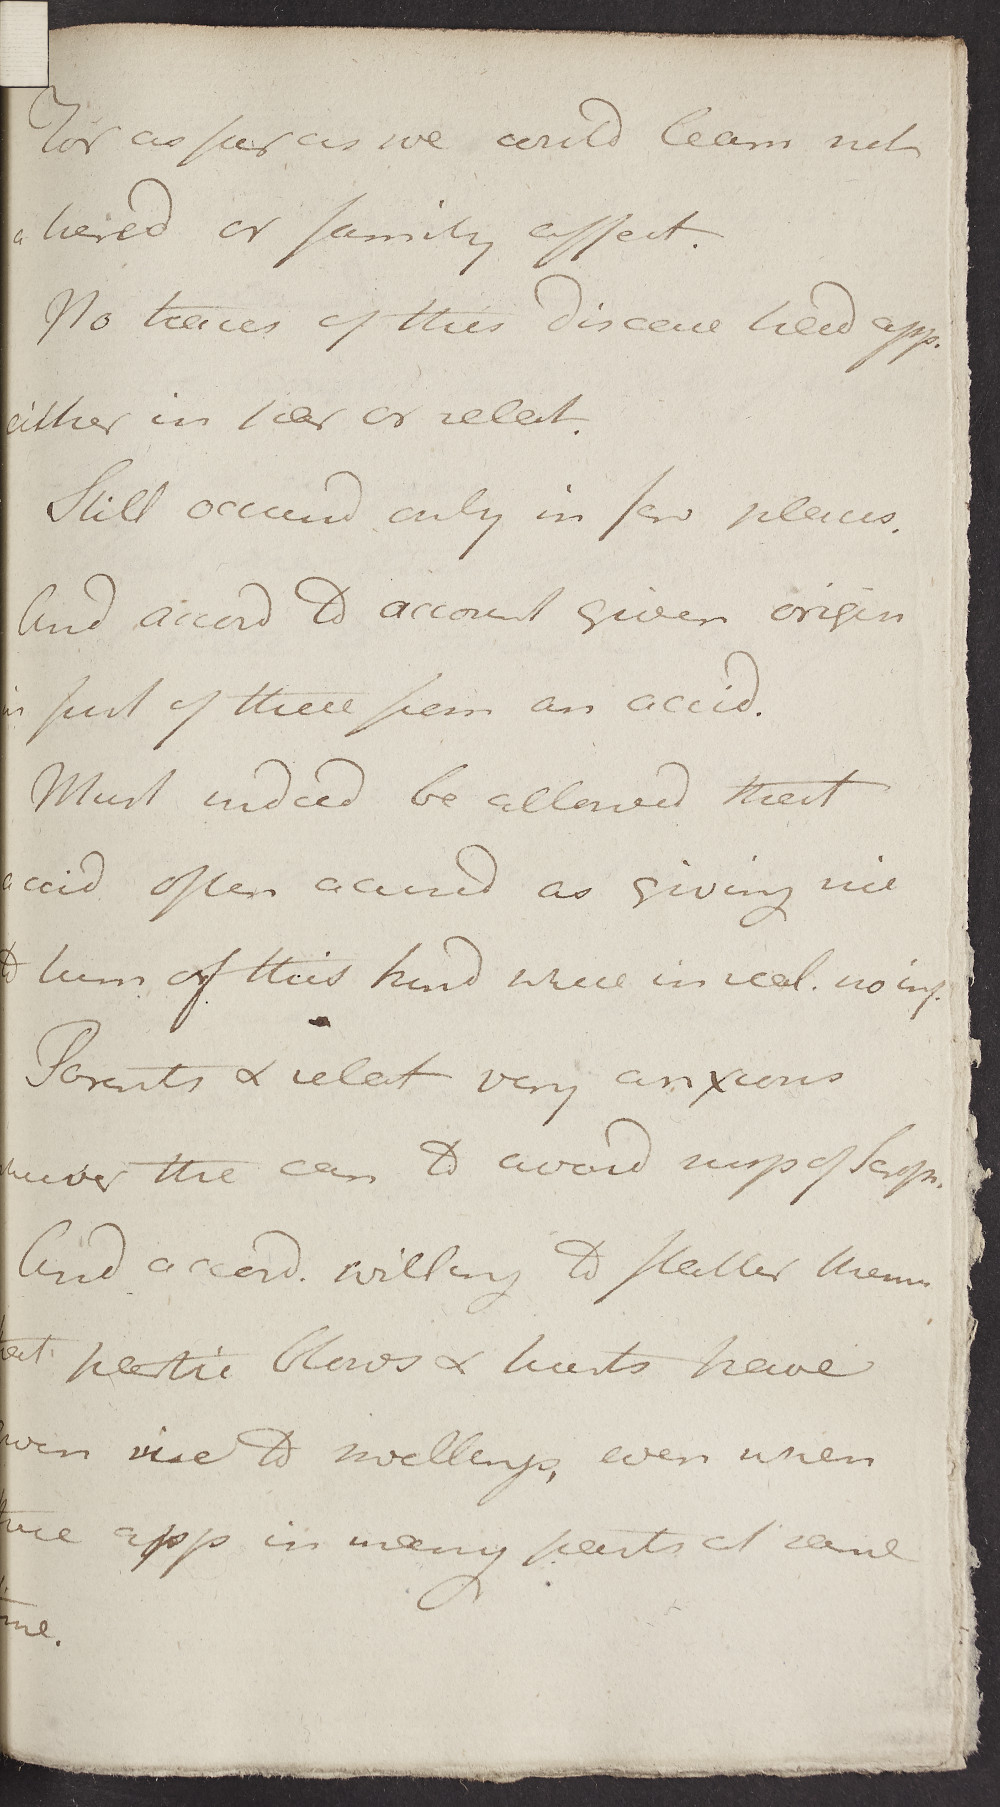 For as far as we could learn not
a hered or family affect.
No traces of this disease had app.
either in her or relat.
Still occurred only in few places.
And accord to account given origin
in first of these from an accid.
Must indeed be allowed that
accid often accused as giving rise
to tum of this kind where in real. no inf.
Parents & relat very anxious
the can to avoid susp of Scrof.
And accord. willing to flatter them
that partic blows & hurts have
given rise to swellings, even when
these app in many parts at same
time.